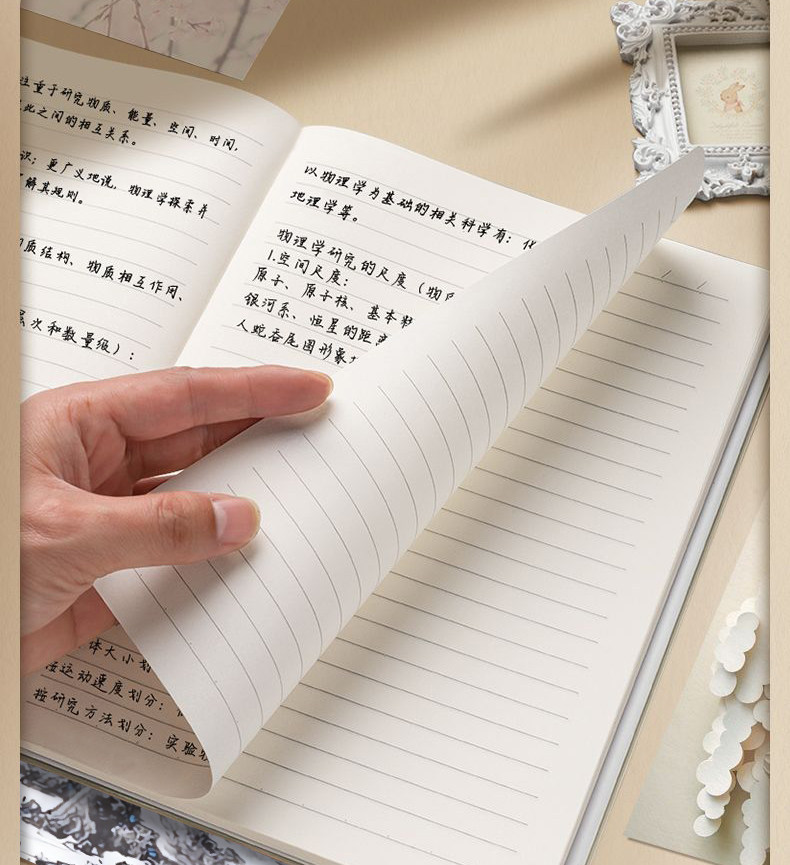 注重于研究物质、能量、空间、时间,
此之间的相互关系。
识; 更广义地说, 物理学探索并
解其规则。
质结构、物质相互作用、
层次和数量级):
以物理学为基础的相关科学有: 化
地理学等。
物理学研究的尺度 (物
1.空间尺度:
原子、原子核、基本
银河系、恒星的距离
人蛇吞尾图形象
体大小划
按运动速度划分:
按研究方法划分: 实验物